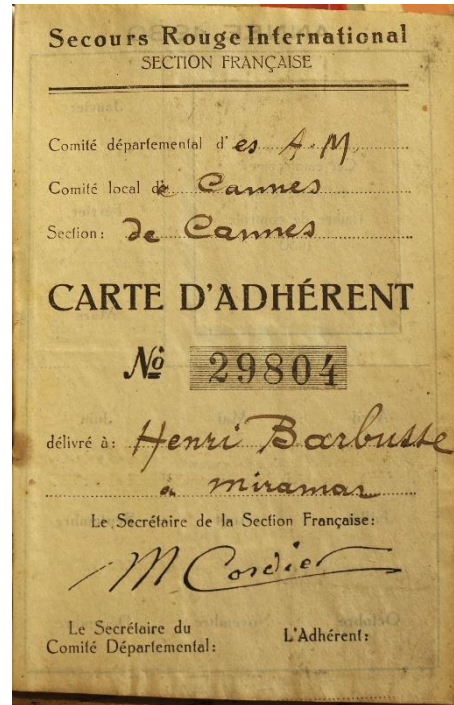 Secours Rouge International
SECTION FRANÇAISE
Comité départemental d'es A.M.
Comité local de Cannes
Section: de Cannes
CARTE D'ADHÉRENT
No 29804
délivré à: Henri Barbusse
à Miramar
Le Secrétaire de la Section Française:
M Cordier
Le Secrétaire du
Comité Départemental:
L'Adhérent: